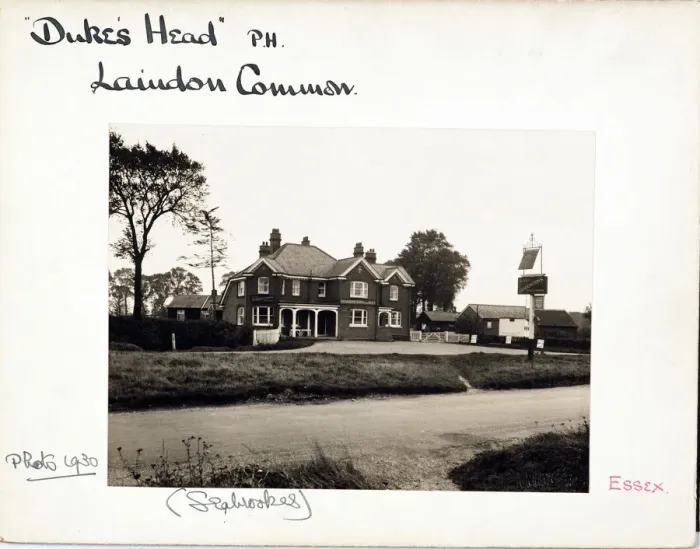 "Duke's Head" P.H.
Laindon Common.
Photo 1930
(Seabrookes)
ESSEX.